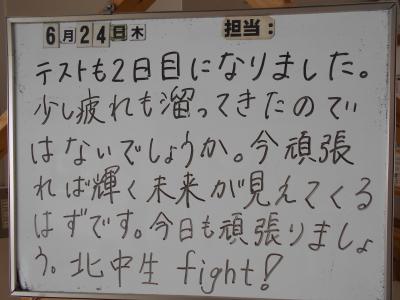 6月24日木 担当:
テストも2日目になりました。
少し疲れも溜ってきたのでい
はないでしょうか。今頑張
れば輝く未来が見えてくる
はずです。今日も頑張りましょ
う。北中生 fight!